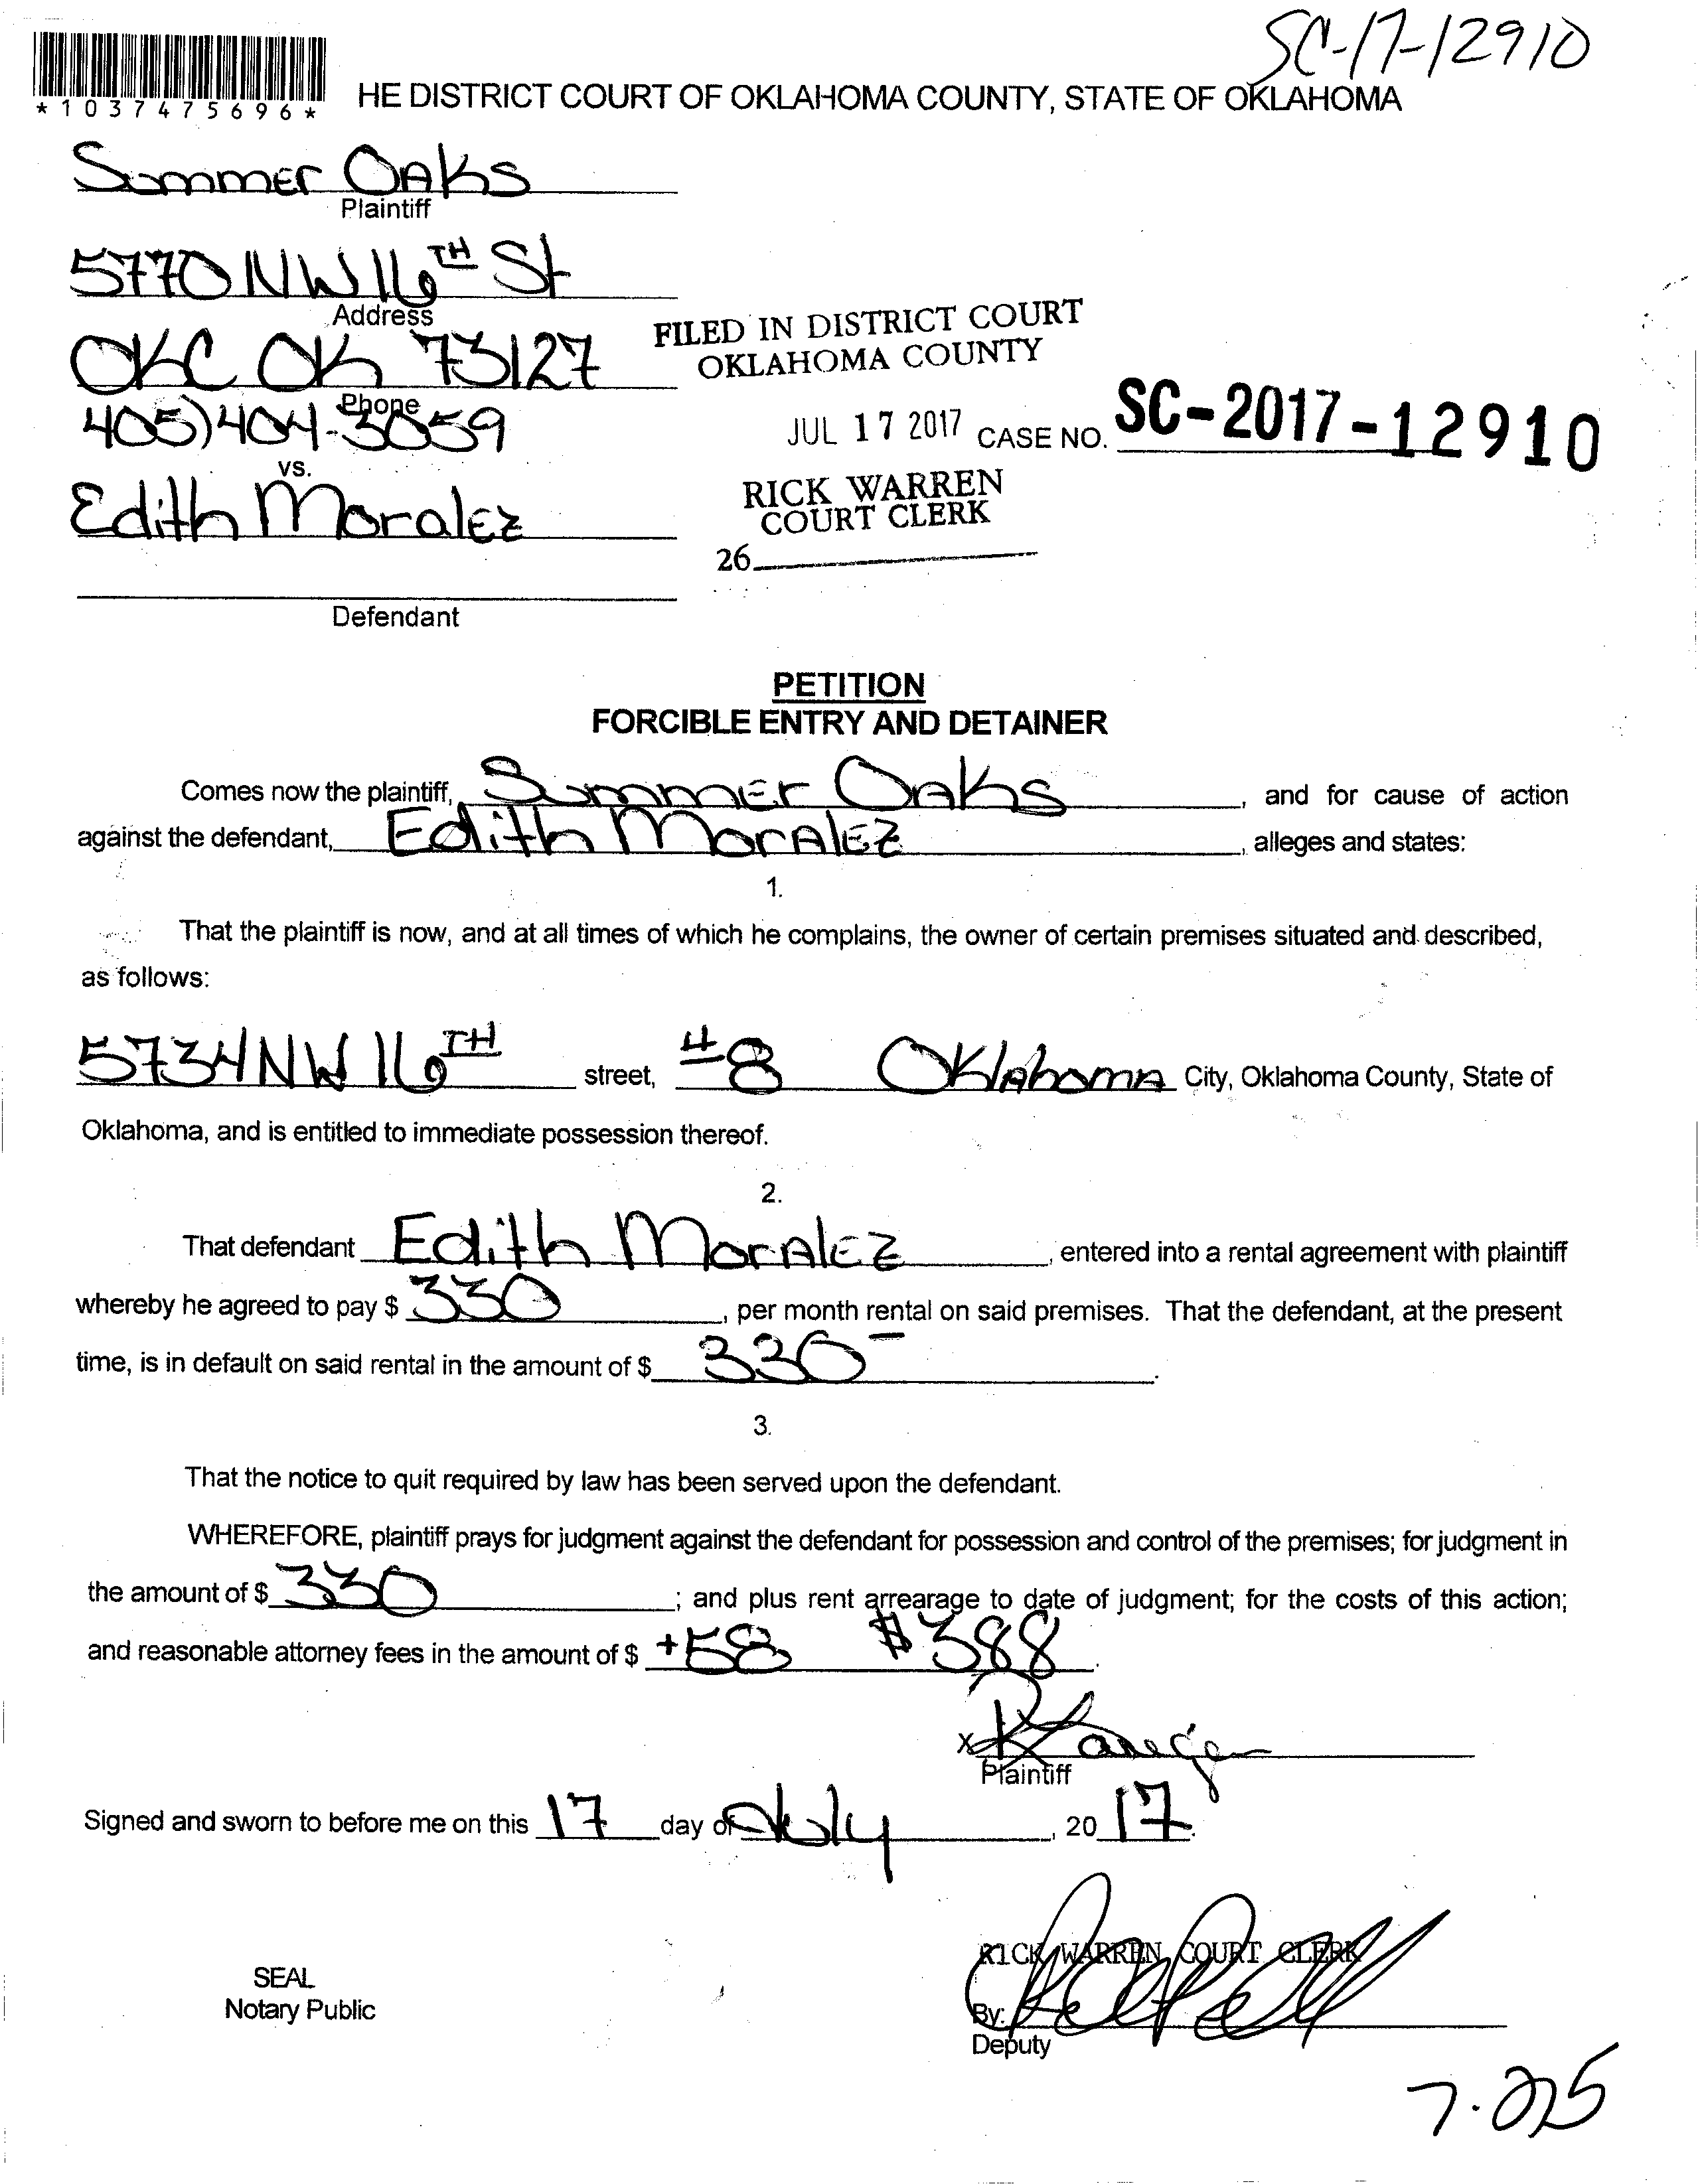 SC-17-12910
*1037475696*
HE DISTRICT COURT OF OKLAHOMA COUNTY, STATE OF OKLAHOMA
Summer Oaks
Plaintiff
5770 NW 16TH St
Address
OKC OK 73127
Phone
405)404-3059
vs.
Edith Moralez
Defendant
FILED IN DISTRICT COURT
OKLAHOMA COUNTY
JUL 17 2017
CASE NO. SC-2017-12910
RICK WARREN
COURT CLERK
26
PETITION
FORCIBLE ENTRY AND DETAINER
Comes now the plaintiff, Summer Oaks, and for cause of action
against the defendant, Edith Moralez, alleges and states:
1.
That the plaintiff is now, and at all times of which he complains, the owner of certain premises situated and described,
as follows:
5734 NW 16TH street, #8 Oklahoma City, Oklahoma County, State of
Oklahoma, and is entitled to immediate possession thereof.
2.
That defendant Edith Moralez, entered into a rental agreement with plaintiff
whereby he agreed to pay $ 330, per month rental on said premises. That the defendant, at the present
time, is in default on said rental in the amount of $ 330-.
3.
That the notice to quit required by law has been served upon the defendant.
WHEREFORE, plaintiff prays for judgment against the defendant for possession and control of the premises; for judgment in
the amount of $ 330; and plus rent arrearage to date of judgment; for the costs of this action;
and reasonable attorney fees in the amount of $ +58 $388.
x
Plaintiff
Signed and sworn to before me on this 17 day of July, 2017.
RICK WARREN COURT CLERK
SEAL
Notary Public
By:
Deputy